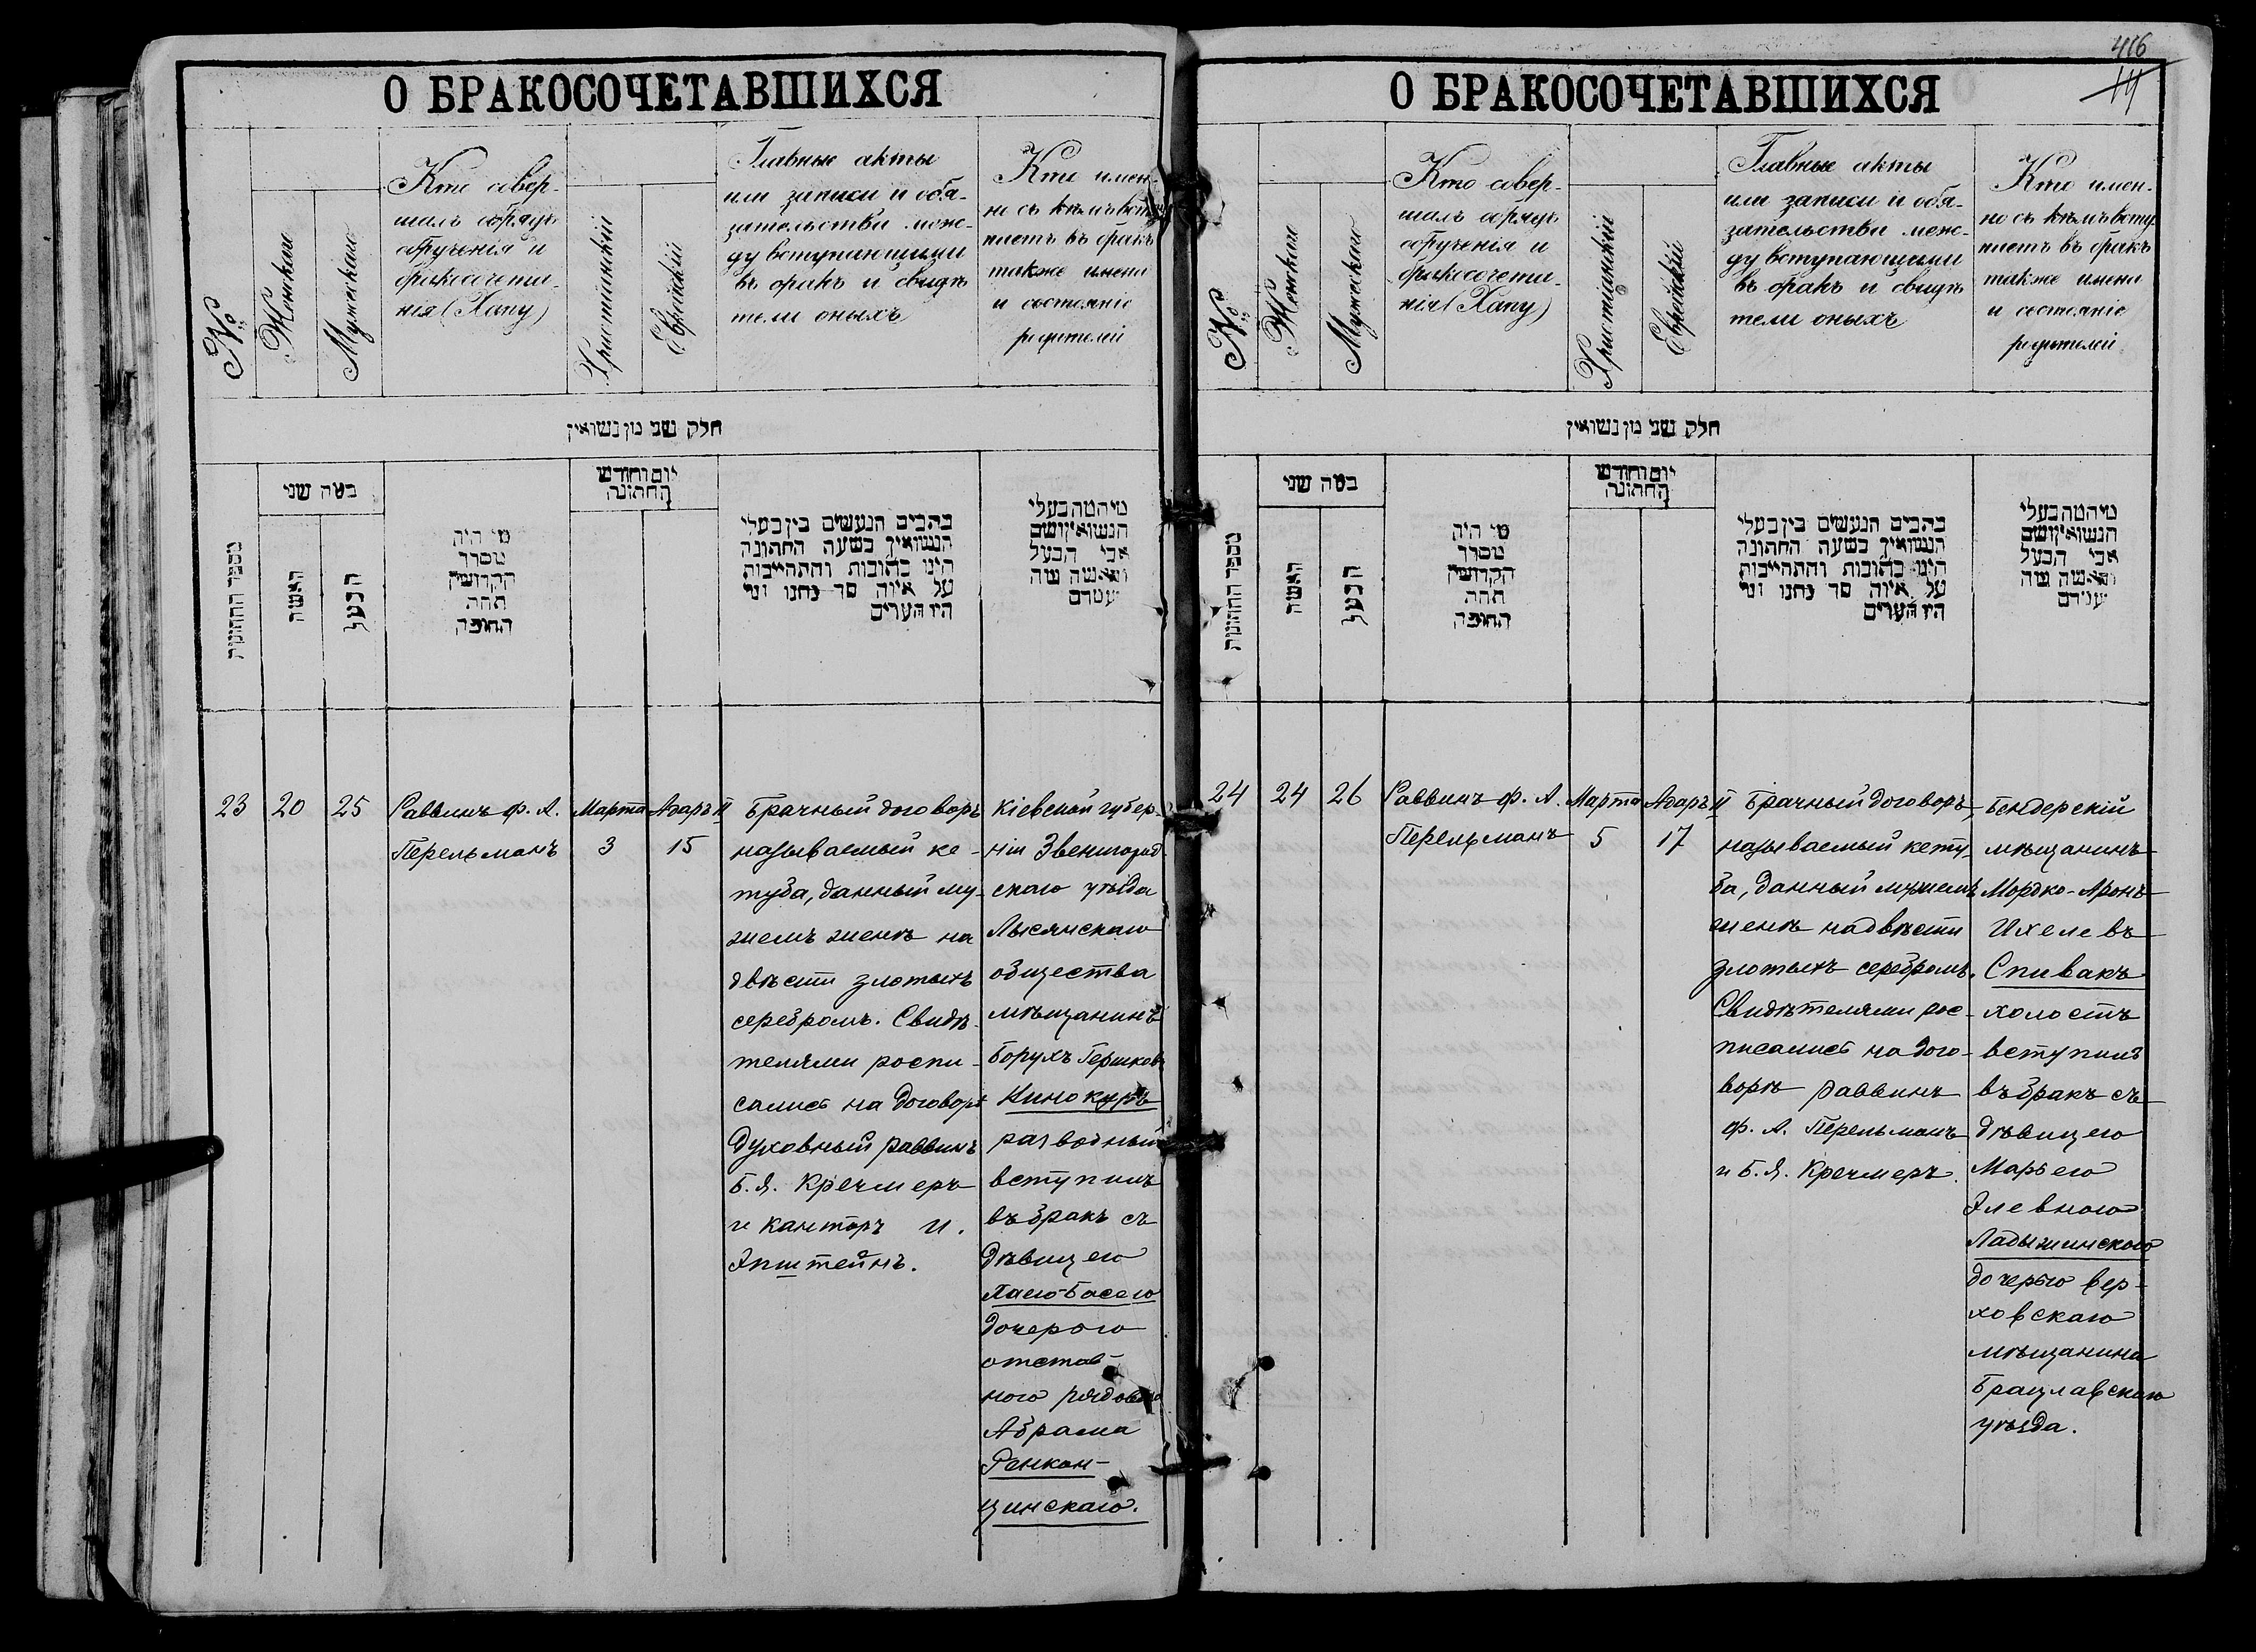 О БРАКОСОЧЕТАВШИХСЯ
№
Женскаго
Мужескаго
Кто совер-
шалъ обрядъ
обрученія и
бракосочета-
нія (Хапу)
Христіянскій
Еврейскій
Главные акты
или записи и обя-
зательства меж-
ду вступающими
въ бракъ и свидѣ
тели оныхъ
Кто имен-
но съ кѣмъ всту
паетъ въ бракъ
также имена
и состояніе
родителей
חלק שני מן נשואין
מספר החתונות
כמה שני
האשה
הבעל
מי היה
מסדר
הקדושין
תחת
החופה
יום וחודש
החתונה
כתבים הנעשים בין בעלי
הנשואין בשעה החתונה
היינו כתובות והתחייבות
על איזה סך נתנו ומי
היו העדים
מי המה בעלי
הנשואין ושם
אבי הבעל
והאשה ומה
23
20
25
Раввинъ Ф. А.
Перельманъ
Марта
3
Адаръ II
15
Брачный договоръ
называемый ке-
туба, данный му-
жемъ женѣ на
двѣсти злотыхъ
серебромъ. Свидѣ-
телями роспи-
сались на договорѣ
Духовный раввинъ
Б. Я. Кречмеръ
и канторъ И.
Эпштейнъ.
Кіевской губер-
ніи Звенигород-
скаго уѣзда
Лысянскаго
общества
мѣщанинъ
Борухъ Гершковъ
Винокуръ
разводный
вступилъ
въ бракъ съ
дѣвицею
Басею
дочерью
отстав-
ного рядового
Абрама
Ренкан-
цинскаго.
416
14
О БРАКОСОЧЕТАВШИХСЯ
№
Женскаго
Мужескаго
Кто совер-
шалъ обрядъ
обрученія и
бракосочета-
нія (Хапу)
Христіянскій
Еврейскій
Главные акты
или записи и обя-
зательства меж-
ду вступающими
въ бракъ и свидѣ
тели оныхъ
Кто имен-
но съ кѣмъ всту
паетъ въ бракъ
также имена
и состояніе
родителей
חלק שני מן נשואין
מספר החתונות
כמה שני
האשה
הבעל
מי היה
מסדר
הקדושין
תחת
החופה
יום וחודש
החתונה
כתבים הנעשים בין בעלי
הנשואין בשעה החתונה
היינו כתובות והתחייבות
על איזה סך נתנו ומי
היו העדים
מי המה בעלי
הנשואין ושם
אבי הבעל
והאשה ומה
24
24
26
Раввинъ Ф. А.
Перельманъ
Марта
5
Адаръ II
17
Брачный договоръ,
называемый кету-
ба, данный мужемъ
женѣ на двѣсти
злотыхъ серебромъ.
Свидѣтелями рос-
писались на дого-
ворѣ раввинъ
Ф. А. Перельманъ
и Б. Я. Кречмеръ.
Бендерскій
мѣщанинъ
Мордко-Аронъ
Ихелевъ
Спивакъ
холостъ
вступилъ
въ бракъ съ
дѣвицею
Марьею
Элевною
Ладыжинскою
дочерью вер-
ховскаго
мѣщанина
Брацлавскаго
уѣзда.